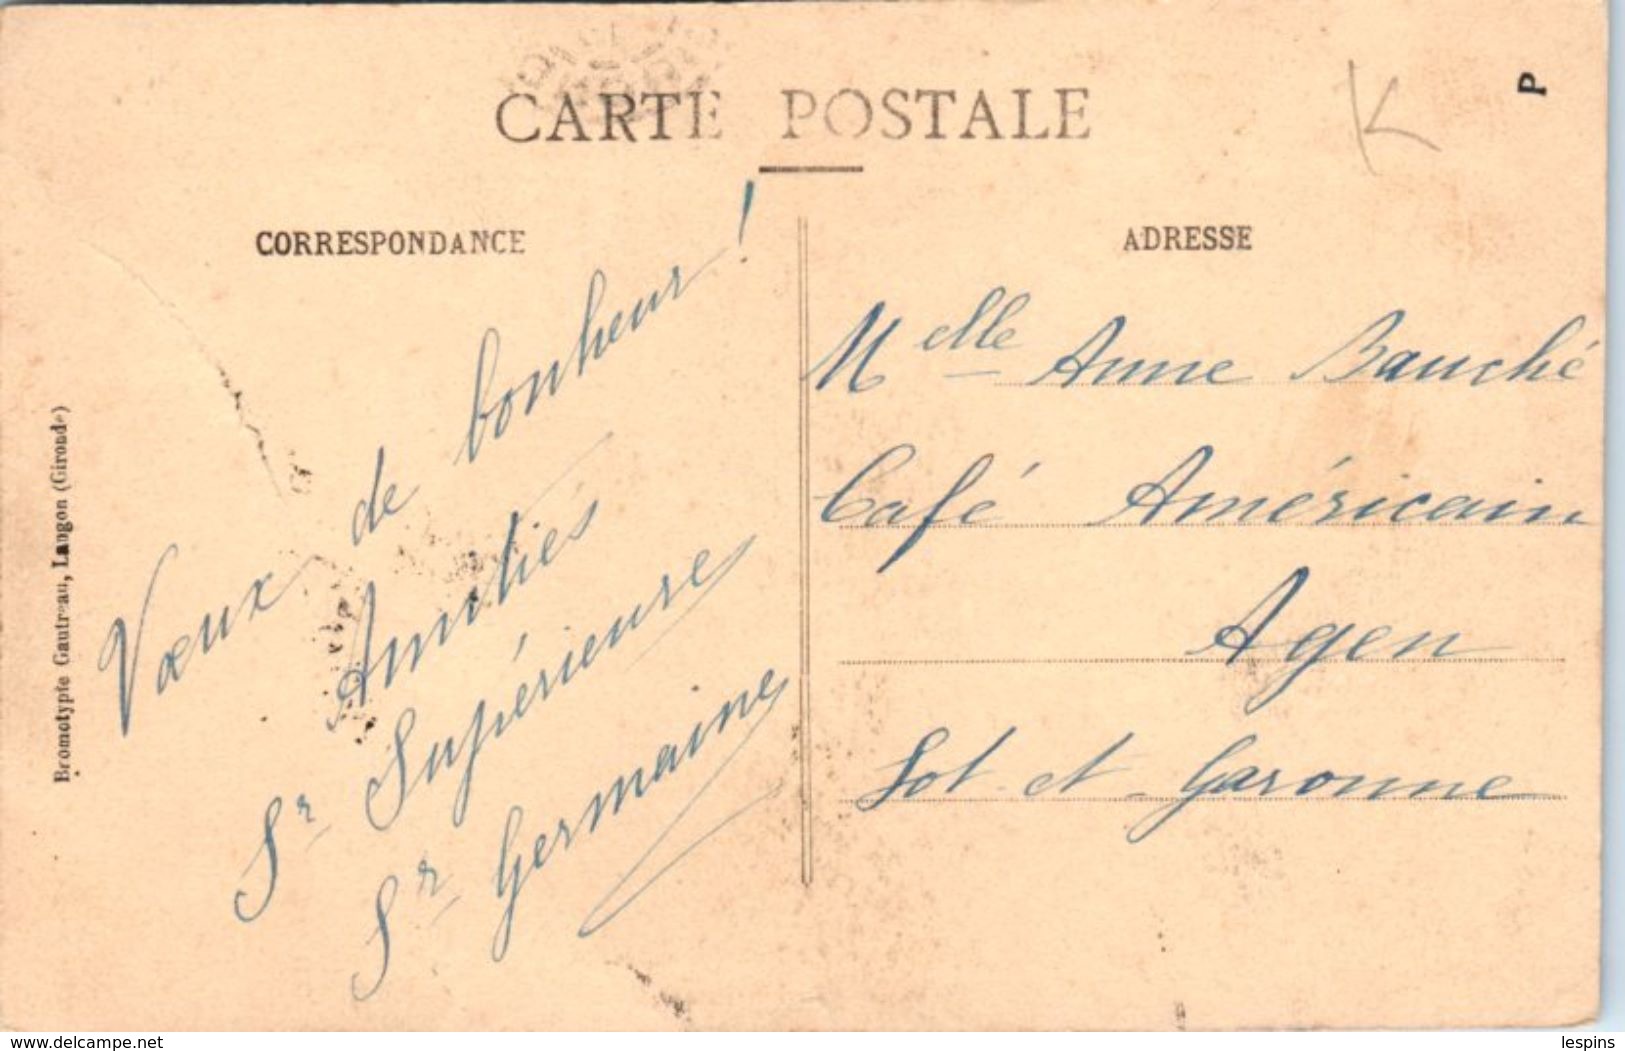 CARTE POSTALE
K
P
CORRESPONDANCE
Vœux de bonheur !
Amitiés
Sr Supérieure
Sr Germaine
ADRESSE
Melle Anne Bauché
Café Américain
Agen
Lot-et-Garonne
Bromotypie Gautreau, Langon (Gironde)
www.delcampe.net
lespins